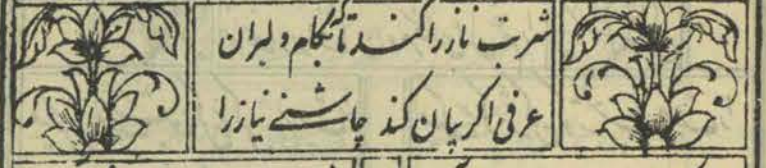 شربت ناز را کند تلخ بکام دلبران
عرفی اگر بیان کند چاشنی نیاز را